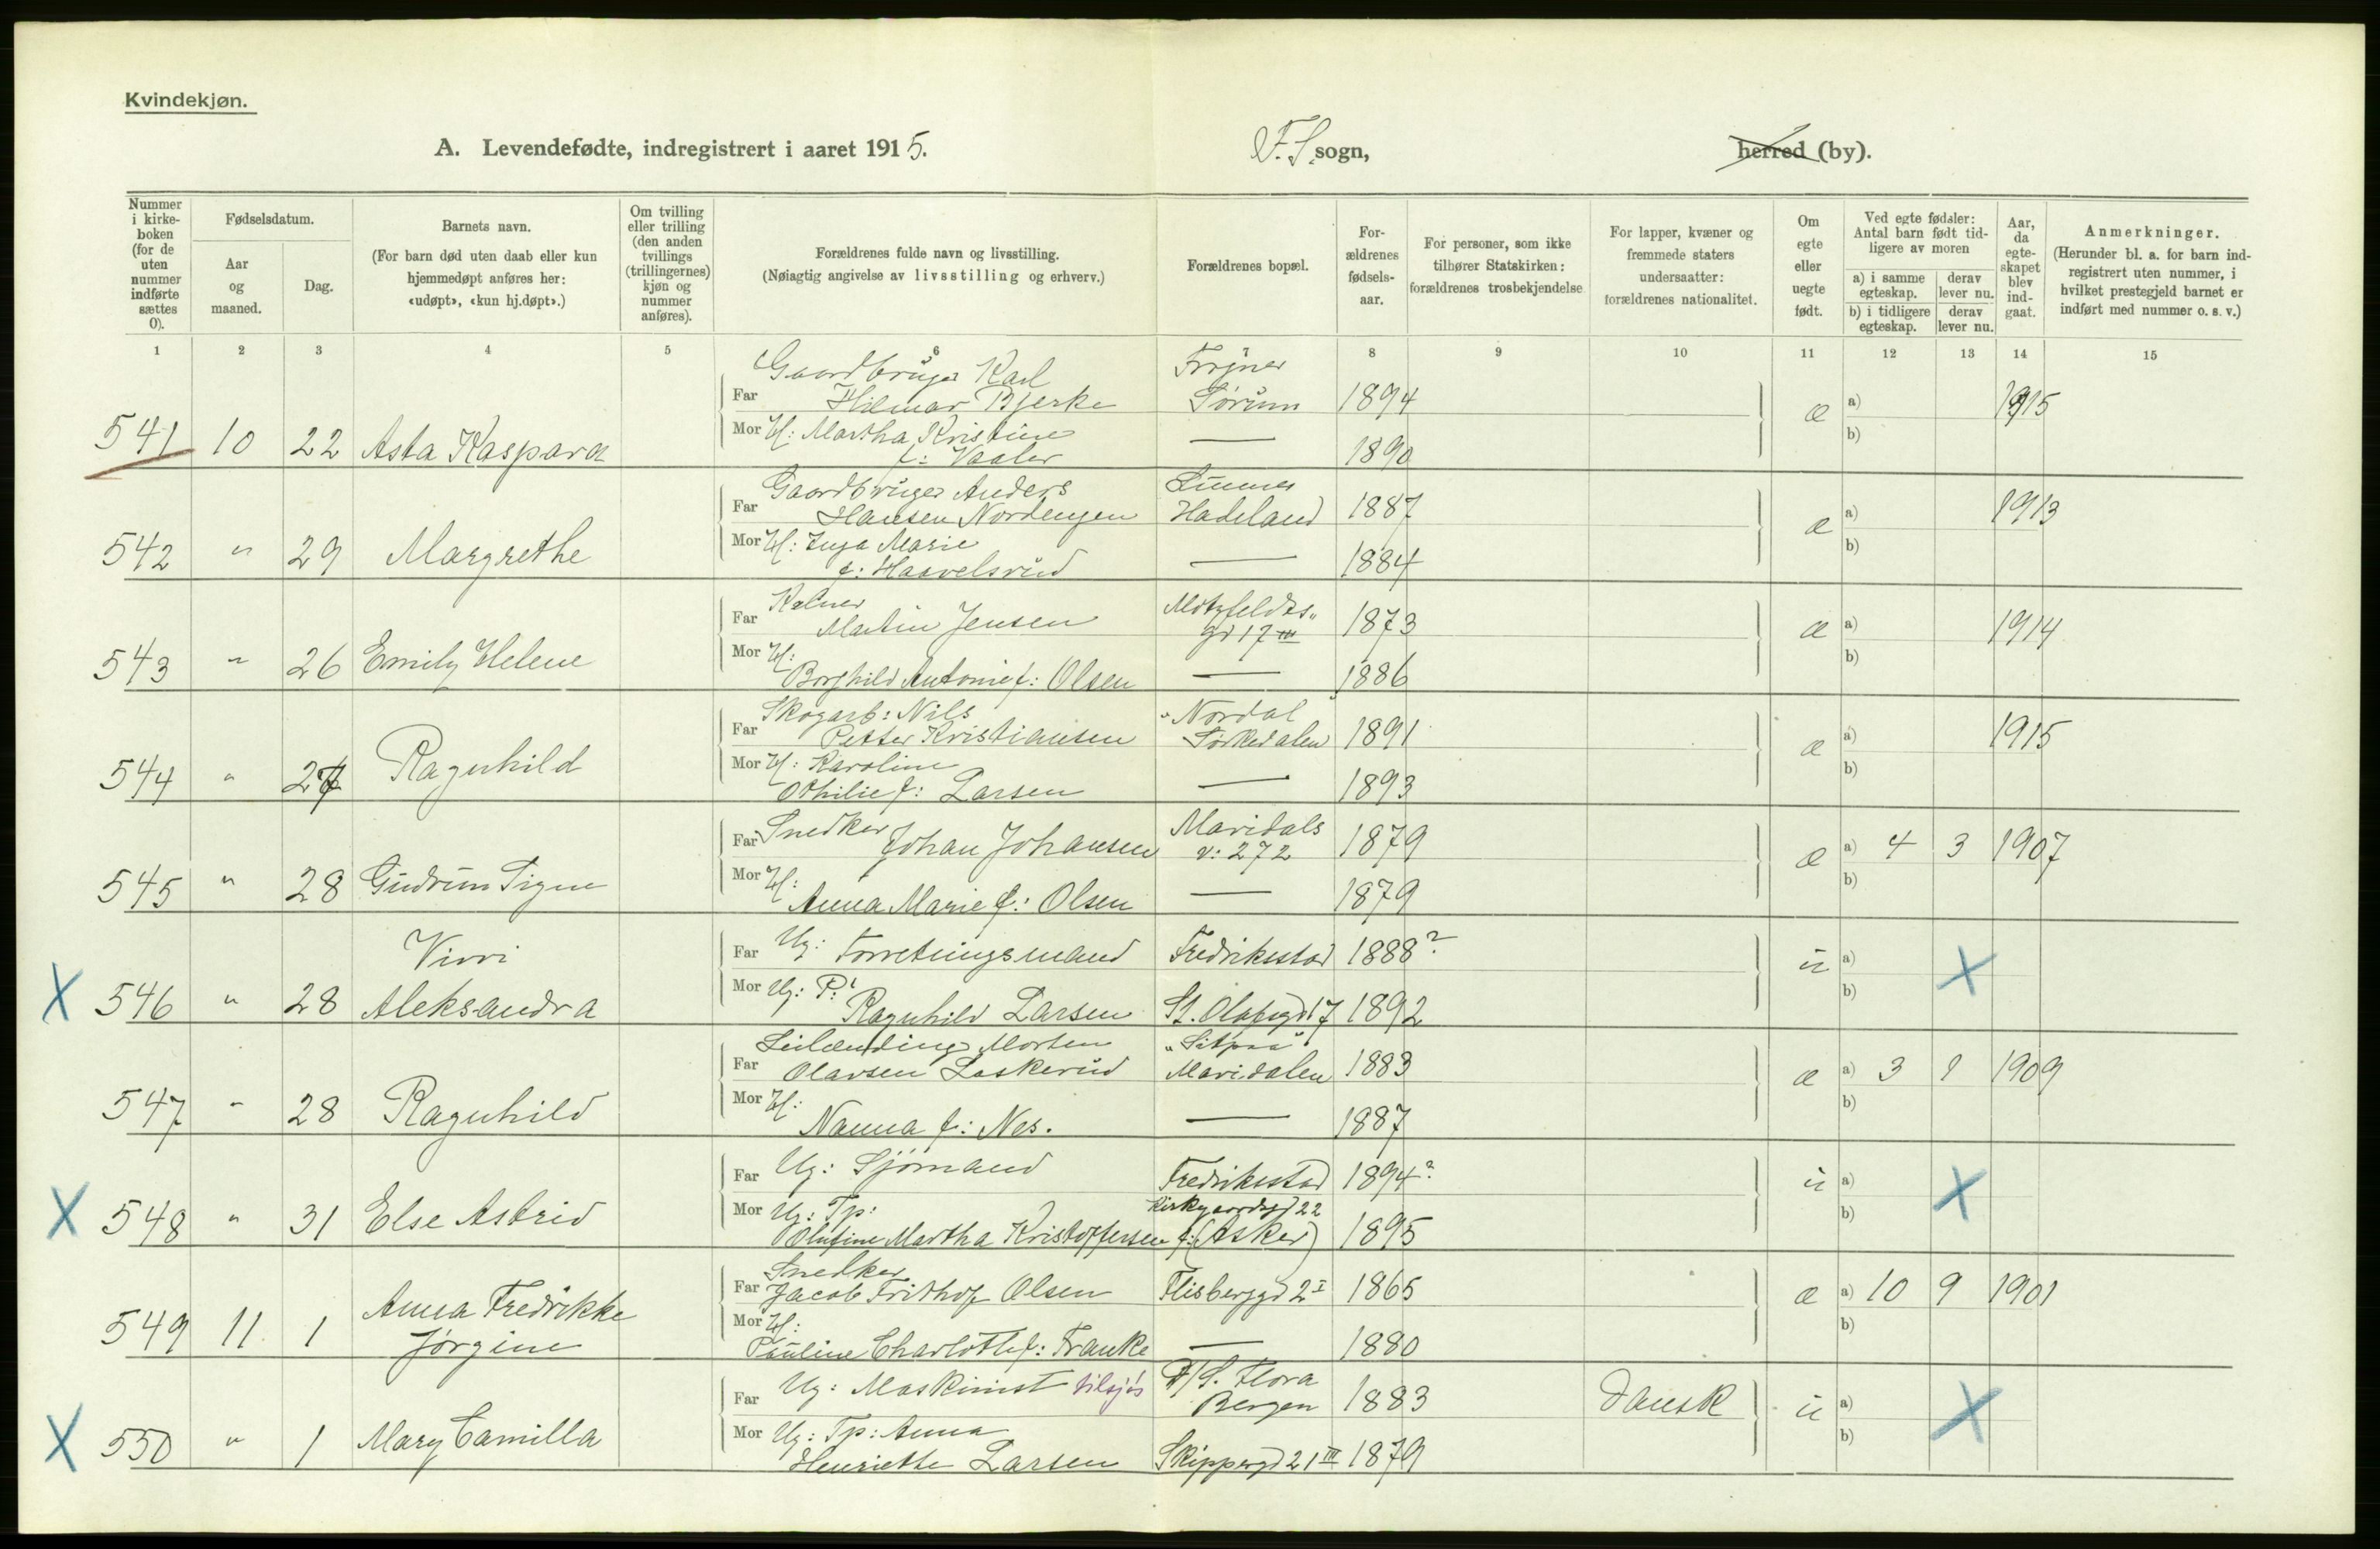 Kvindekjøn.
A. Levendefødte, indregistrert i aaret 1915.
F. S. sogn,
herred (by).
Nummer i kirke-boken (for de uten nummer indførte sættes 0).
Fødselsdatum.
Aar og maaned.
Dag.
Barnets navn.
(For barn død uten daab eller kun hjemmedøpt anføres her: «udøpt», «kun hj.døpt».)
Om tvilling eller trilling (den anden tvillings (trillingernes) kjøn og nummer anføres).
Forældrenes fulde navn og livsstilling.
(Nøiagtig angivelse av livsstilling og erhverv.)
Forældrenes bopæl.
For-ældrenes fødsels-aar.
For personer, som ikke tilhører Statskirken: forældrenes trosbekjendelse
For lapper, kvæner og fremmede staters undersaatter: forældrenes nationalitet.
Om egte eller uegte født.
Ved egte fødsler: Antal barn født tid-ligere av moren
a) i samme egteskap.
derav lever nu.
b) i tidligere egteskap.
derav lever nu.
Aar, da egte-skapet blev ind-gaat.
Anmerkninger.
(Herunder bl. a. for barn ind-registrert uten nummer, i hvilket prestegjeld barnet er indført med nummer o. s. v.)
1 2 3 4 5 6 7 8 9 10 11 12 13 14 15
Gaardbruger Karl Frogner
Far Hilmar Bjerke Sørum 1894 æ a) 1915
541 10 22 Asta Kaspara Mor H: Martha Kristine — b)
f: Vaaler 1890
Gaardbruger Anders Lunner
Far Hansen Nordengen Hadeland 1887 æ a) 1913
542 " 29 Margrethe Mor H: Inga Marie — b)
f: Haavelsrud 1884
Kelner Motzfeldts"
Far Martin Jensen gd 17 III 1873 æ a) 1914
543 " 26 Emily Helene Mor H: b)
Borghild Antonie f: Olsen — 1886
Skogarb: Nils "Nordal
Far Petter Kristiansen Sørkedalen 1891 æ a) 1915
544 " 27 Ragnhild Mor H: Karoline b)
Othilie f: Larsen — 1893
Far Snedker Johan Johansen Maridals v: 272 1879 æ a) 4 3 1907
545 " 28 Gudrun Signe Mor H: b)
Anna Marie f: Olsen — 1879
Far Ug: Forretningsmand Fredriksstad 1888? u a) X
X 546 " 28 Vivvi Aleksandra Mor Ug: P: b)
Ragnhild Larsen St. Olafsgd 17 1892
Leilænding Morten
Far Olavsen Laskerud Maridalen 1883 æ a) 3 1 1909
547 " 28 Ragnhild Mor H: b)
Nanna f: Nes. — 1887
Far Ug: Sjømand Fredriksstad 1894? u a) X
X 548 " 31 Else Astrid Mor Ug: Tp: Kirkegaardsgd 22 b)
Olufine Martha Kristoffersen f: (Asker) 1895
Snedker
Far Jacob Frithof Olsen Flisberggd 2 I 1865 æ a) 10 9 1901
549 11 1 Anna Fredrikke Jørgine Mor H: b)
Pauline Charlotte f: Franke — 1880
Far Ug: Maskinist tilsjøs D/S. Flora Bergen 1883 dansk u a) X
X 550 " 1 Mary Camilla Mor Ug: Tp: Anna b)
Henriette Larsen Skippergd 21 III 1879